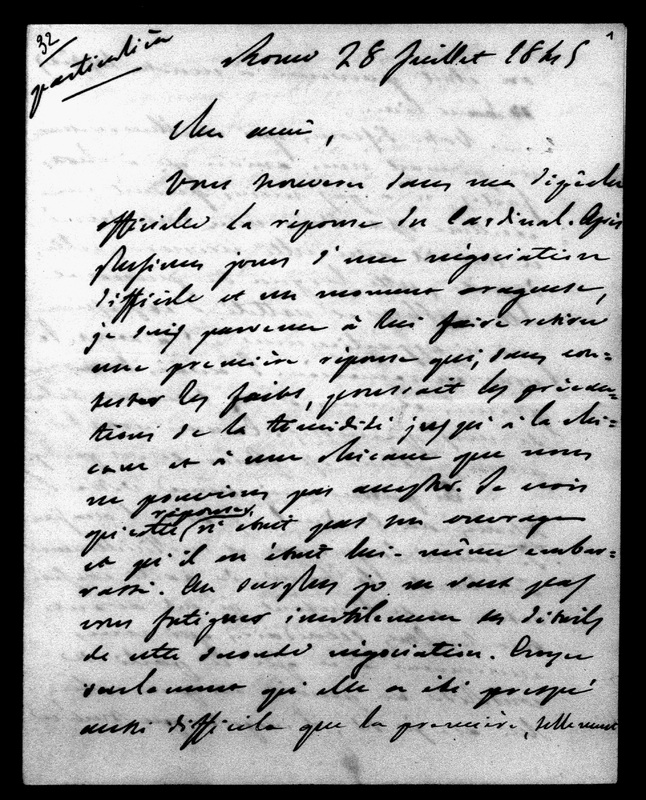 32
particulière
1
Rome 28 Juillet 1845
Cher ami,
Vous trouverez dans ma dépêche
officielle la réponse du Cardinal. Après
plusieurs jours d'une négociation
difficile et un moment orageuse,
je suis parvenu à lui faire retirer
une première réponse qui, sans con=
tester les faits, poussait les précau=
tions de la timidité jusqu'à la chi=
cane et à une chicane que nous
ne pouvions pas accepter. Je crois
réponse
que cette n'était pas son ouvrage
et qu'il en était lui-même embar=
rassé. Au surplus je ne veux pas
vous fatiguer inutilement des détails
de cette seconde négociation. Croyez
seulement qu'elle a été presqu'
aussi difficile que la première, tellement